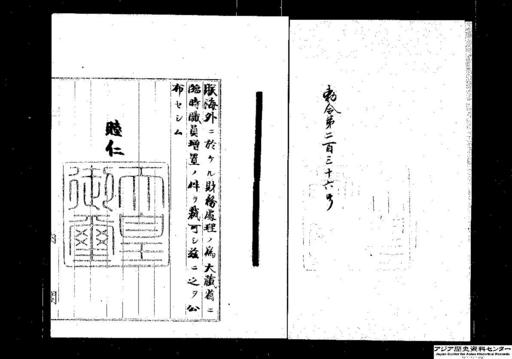 勅令第二百三十六号
朕海外ニ於ケル財務處理ノ為大藏省ニ
臨時職員増置ノ件ヲ裁可シ茲ニ之ヲ公
布セシム
睦仁
天皇
御璽
アジア歴史資料センター
Japan Center for Asian Historical Records